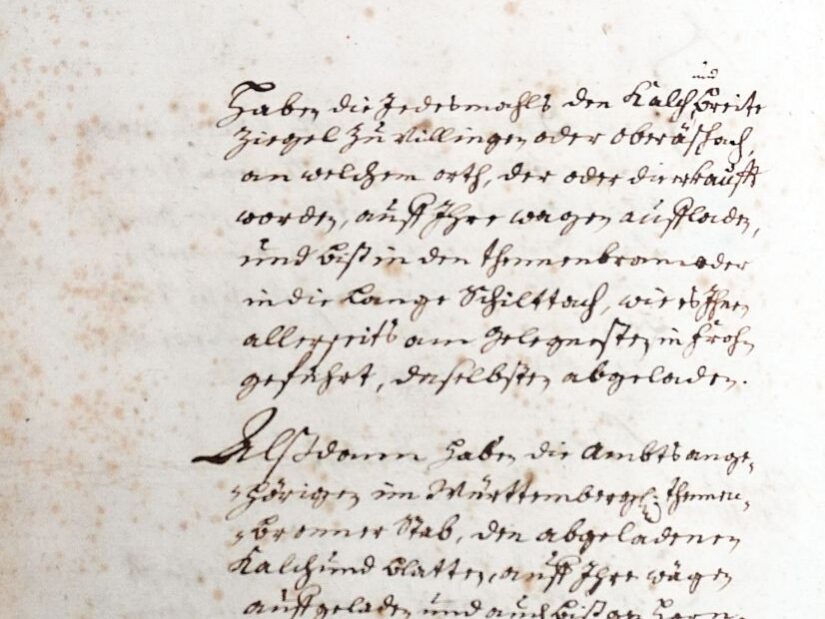 und
Haben die Jedesmahls den Kalch, breite
Ziegel zu Villingen oder oberäschach,
an welchem orth, der oder die erkaufft
worden, auff Ihre wagen auffladen,
und biß in den Thennenbronn oder
in die Lange Schilttach, wie es Ihnen
allerseits am gelegnesten in frohn
geführt, daselbsten abgeladen.
Alßdann haben die Ambtsange,
hörigen im Württembergl: Thennen,
bronner Stab, den abgeladenen
Kalch und blatten, auff Ihre wägen
auffgeladen und auch biß gen Horn